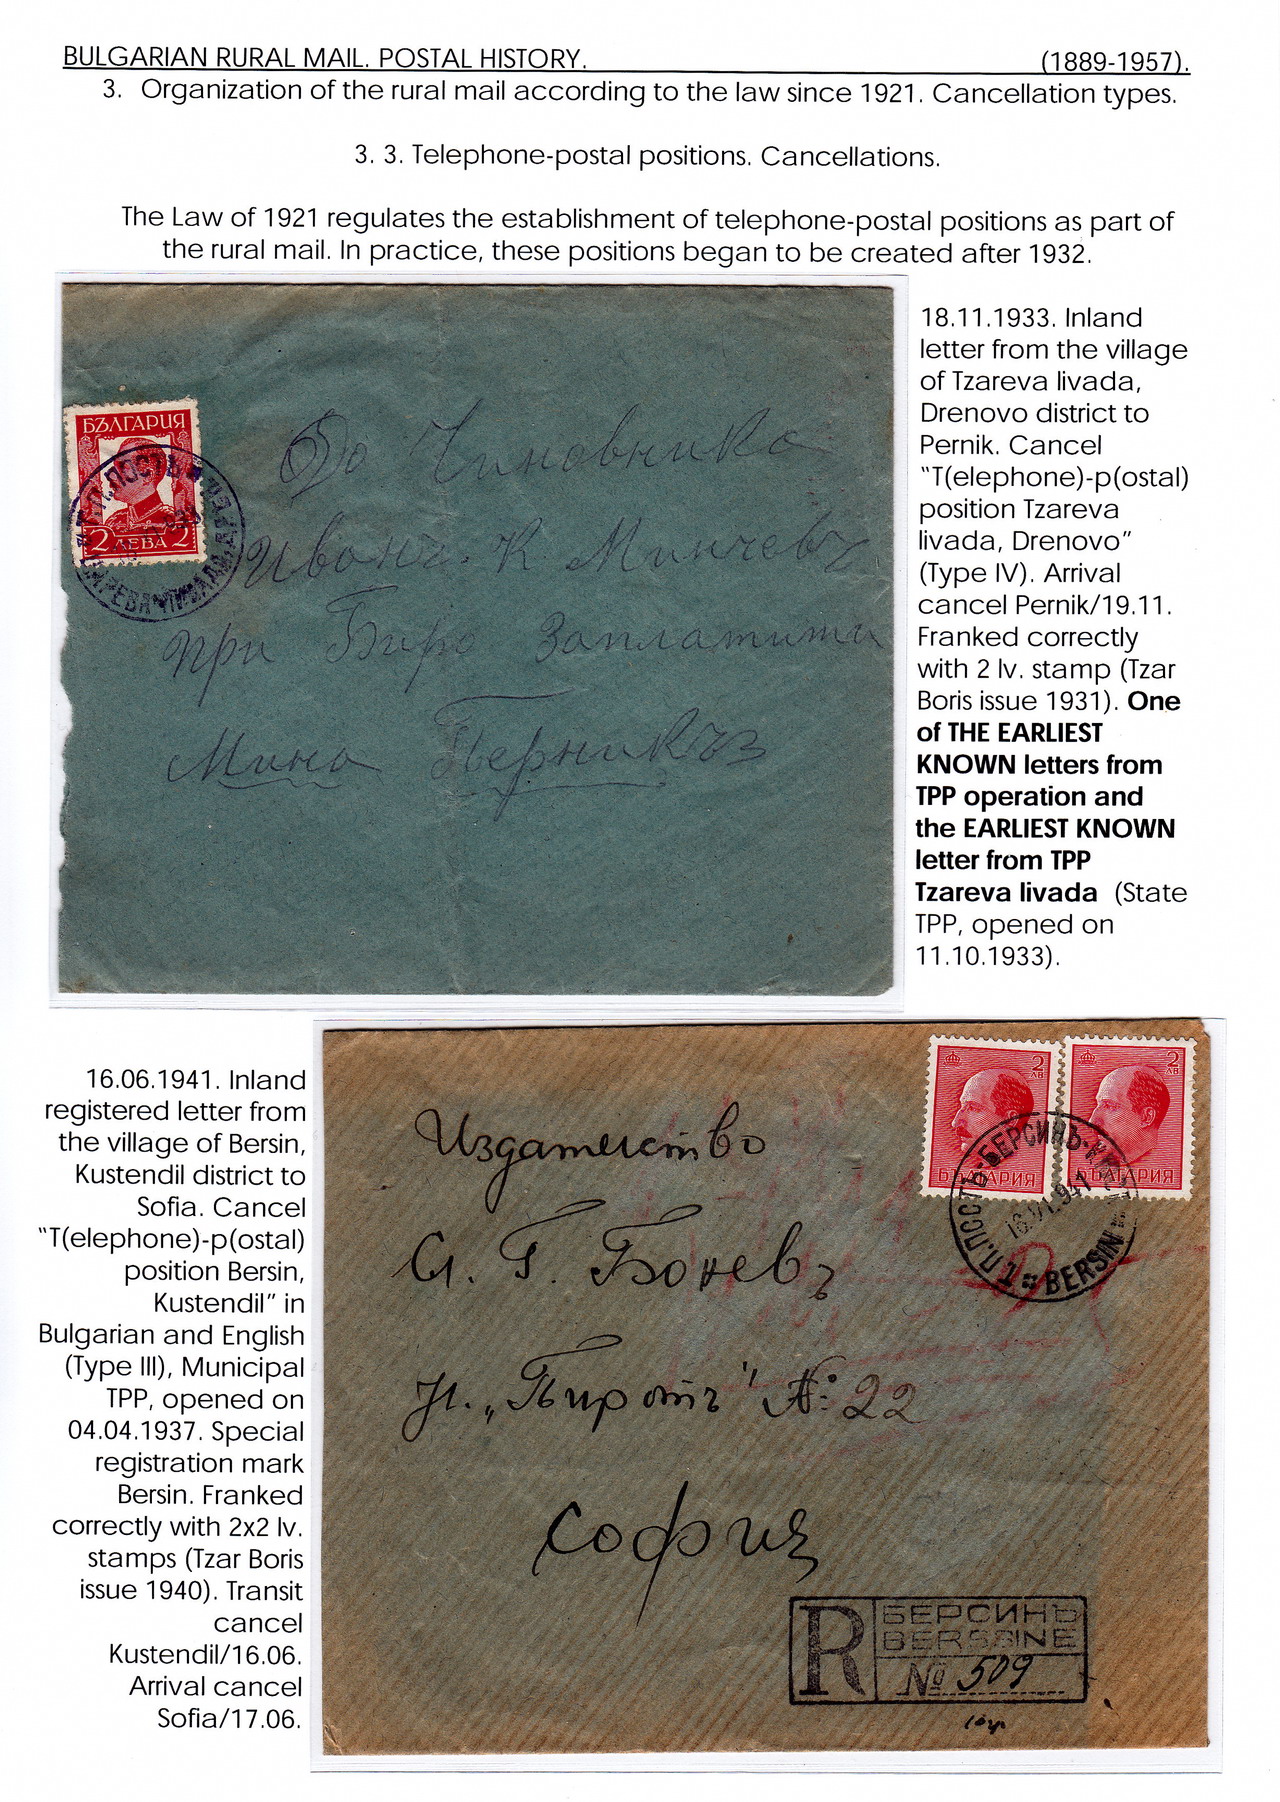 BULGARIAN RURAL MAIL. POSTAL HISTORY. (1889-1957).
3. Organization of the rural mail according to the law since 1921. Cancellation types.
3. 3. Telephone-postal positions. Cancellations.
The Law of 1921 regulates the establishment of telephone-postal positions as part of
the rural mail. In practice, these positions began to be created after 1932.
18.11.1933. Inland
letter from the village
of Tzareva livada,
Drenovo district to
Pernik. Cancel
“T(elephone)-p(ostal)
position Tzareva
livada, Drenovo”
(Type IV). Arrival
cancel Pernik/19.11.
Franked correctly
with 2 lv. stamp (Tzar
Boris issue 1931). One
of THE EARLIEST
KNOWN letters from
TPP operation and
the EARLIEST KNOWN
letter from TPP
Tzareva livada (State
TPP, opened on
11.10.1933).
БЪЛГАРИЯ
2 ЛЕВА 2
До Чиновника
Иванъ. К Минчевъ
при Бюро Заплатити
Мина Перникъ
16.06.1941. Inland
registered letter from
the village of Bersin,
Kustendil district to
Sofia. Cancel
“T(elephone)-p(ostal)
position Bersin,
Kustendil” in
Bulgarian and English
(Type III), Municipal
TPP, opened on
04.04.1937. Special
registration mark
Bersin. Franked
correctly with 2x2 lv.
stamps (Tzar Boris
issue 1940). Transit
cancel
Kustendil/16.06.
Arrival cancel
Sofia/17.06.
2 ЛВ
БЪЛГАРИЯ
2 ЛВ
БЪЛГАРИЯ
Т.П.ПОСТЪ-БЕРСИНЪ
16.VI.941
BERSIN
Издателство
Ст. Г. Боневъ
Ул. „Пиротъ" №: 22
София
R
БЕРСИНЪ
BERSSINE
№ 509